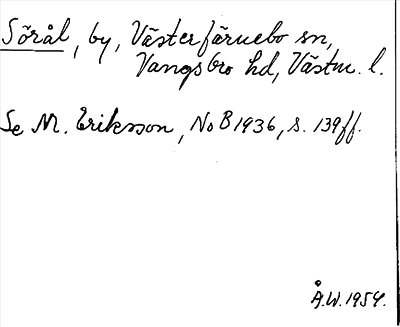 Sörål, by, Västerfärnebo sn,
Vangsbro hd, Västm. l.
Se M. Eriksson, NoB 1936, s. 139ff.
Å.W. 1954.